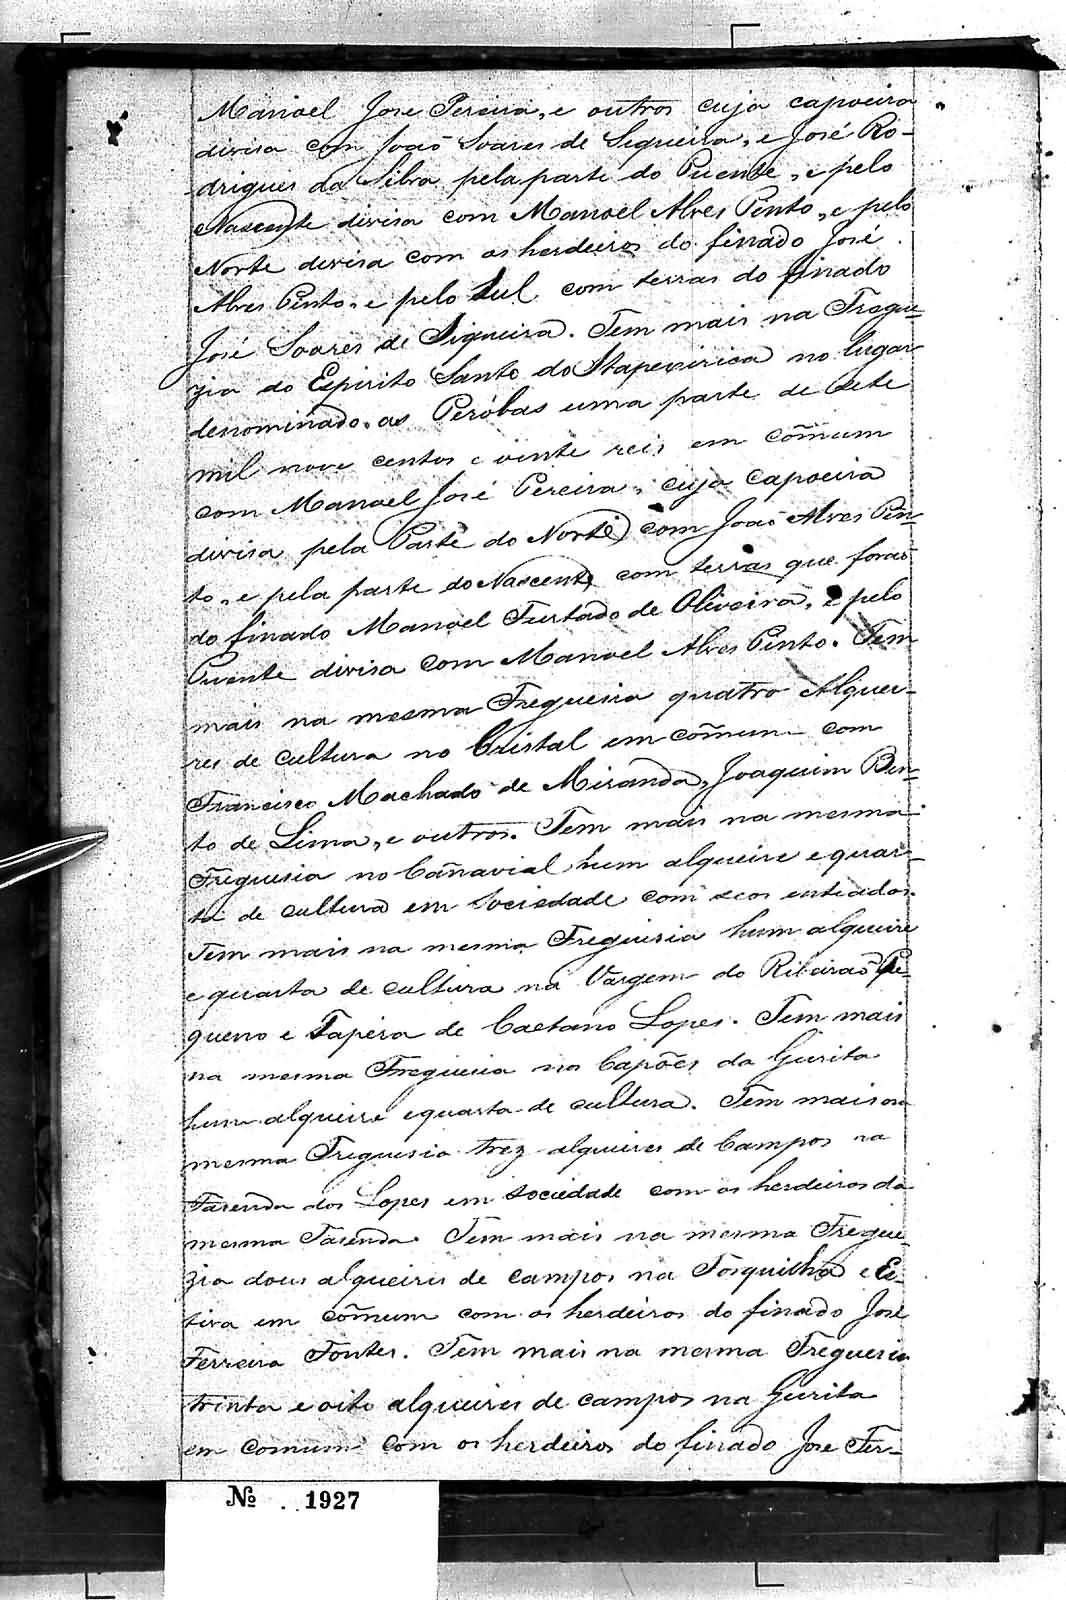 Manoel Jose Pereira, e outros cuja capoeira
divisa com João Soares de Sequeira, e José Ro-
drigues da Silva pela parte do Puente, e pelo
Nascente divisa com Manoel Alves Pinto, e pelo
Norte divisa com os herdeiros do finado José
Alves Pinto, e pelo Sul com terras do finado
José Soares de Siqueira. Tem mais na Fregue-
zia do Espirito Santo do Itapecirica no lugar
denominado, as Peróbas uma parte de sete
mil nove centos e vinte reis em cõmum
com Manoel José Pereira, cuja capoeira
divisa pela Parte do Norte com João Alves Pin-
to, e pela parte do Nascente com terras que forão
do finado Manoel Furtado de Oliveira, e pelo
Puente divisa com Manoel Alves Pinto. Tem
mais na mesma Freguesia quatro Alquei-
res de cultura no Cristal em cõmum com
Francisco Machado de Miranda, Joaquim Ben-
to de Lima, e outros. Tem mais na mesma
Freguesia no Cañavial hum alqueire e quar-
ta de cultura em Sociedade com seos enteados.
Tem mais na mesma Freguesia hum alqueire
e quarta de cultura na Vargem do Ribeirão Pe-
queno e Tapéra de Caetano Lopes. Tem mais
na mesma Freguesia nos Capões da Gurita
hum alqueire e quarta de cultura. Tem mais na
mesma Freguesia trez alqueires de Campos na
Fazenda dos Lopes em sociedade com os herdeiros da
mesma Fazenda. Tem mais na mesma Fregue-
zia dous alqueires de campos na Forquilha e Es-
tiva em cõmum com os herdeiros do finado José
Ferreira Fontes. Tem mais na mesma Freguesia
trinta e oito alqueires de campos na Gurita
em comum com os herdeiros do finado Jose Fer-
Nº 1927